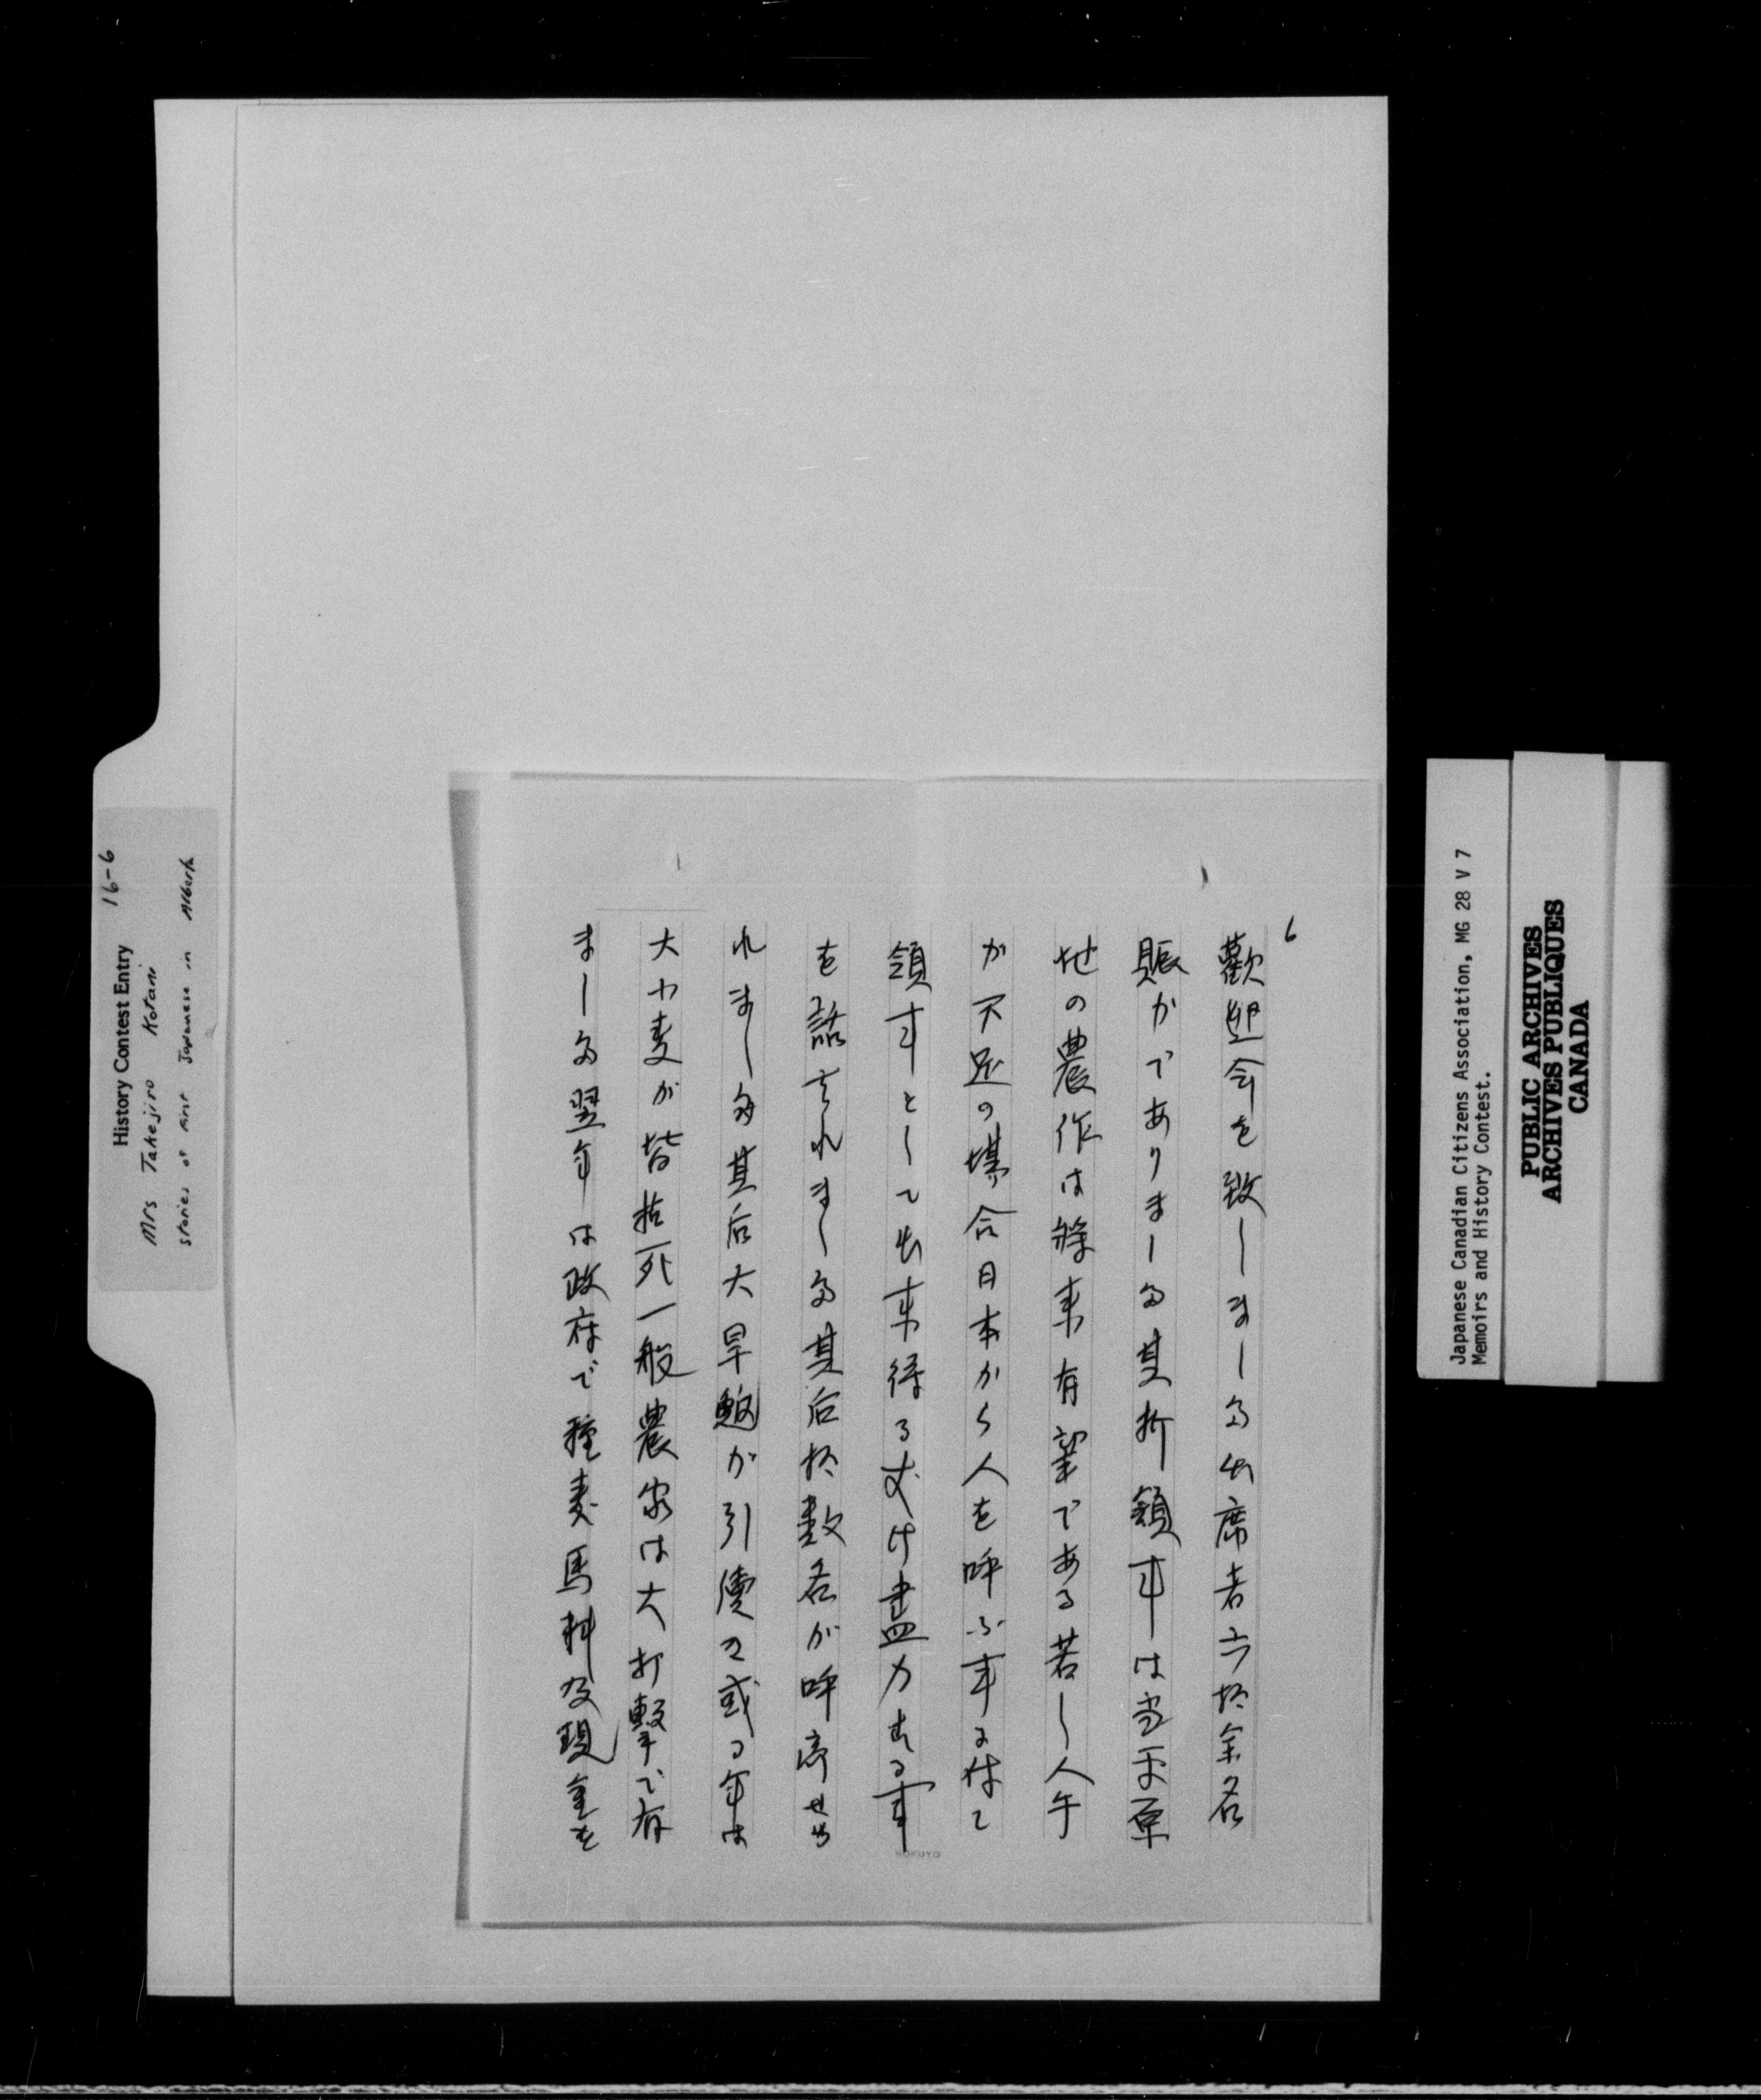 6
歡迎会を致しました出席者六拾余名
賑かでありました其折領事は当平原
地の農作は将来有望である若し人手
が不足の場合日本から人を呼ぶ事に付て
領事として出来得る丈け尽力する事
を話されました其后拾数名が呼寄せら
れました其后大旱魃が引續て或る年は
大小麦が皆枯死一般農家は大打撃で有
ました翌年は政府で種麦馬料及現金を
KOKUYO
History Contest Entry 16-6
Mrs Takejiro Kotani
Stories of First Japanese in Alberta
Japanese Canadian Citizens Association, MG 28 V 7
Memoirs and History Contest.
PUBLIC ARCHIVES
ARCHIVES PUBLIQUES
CANADA